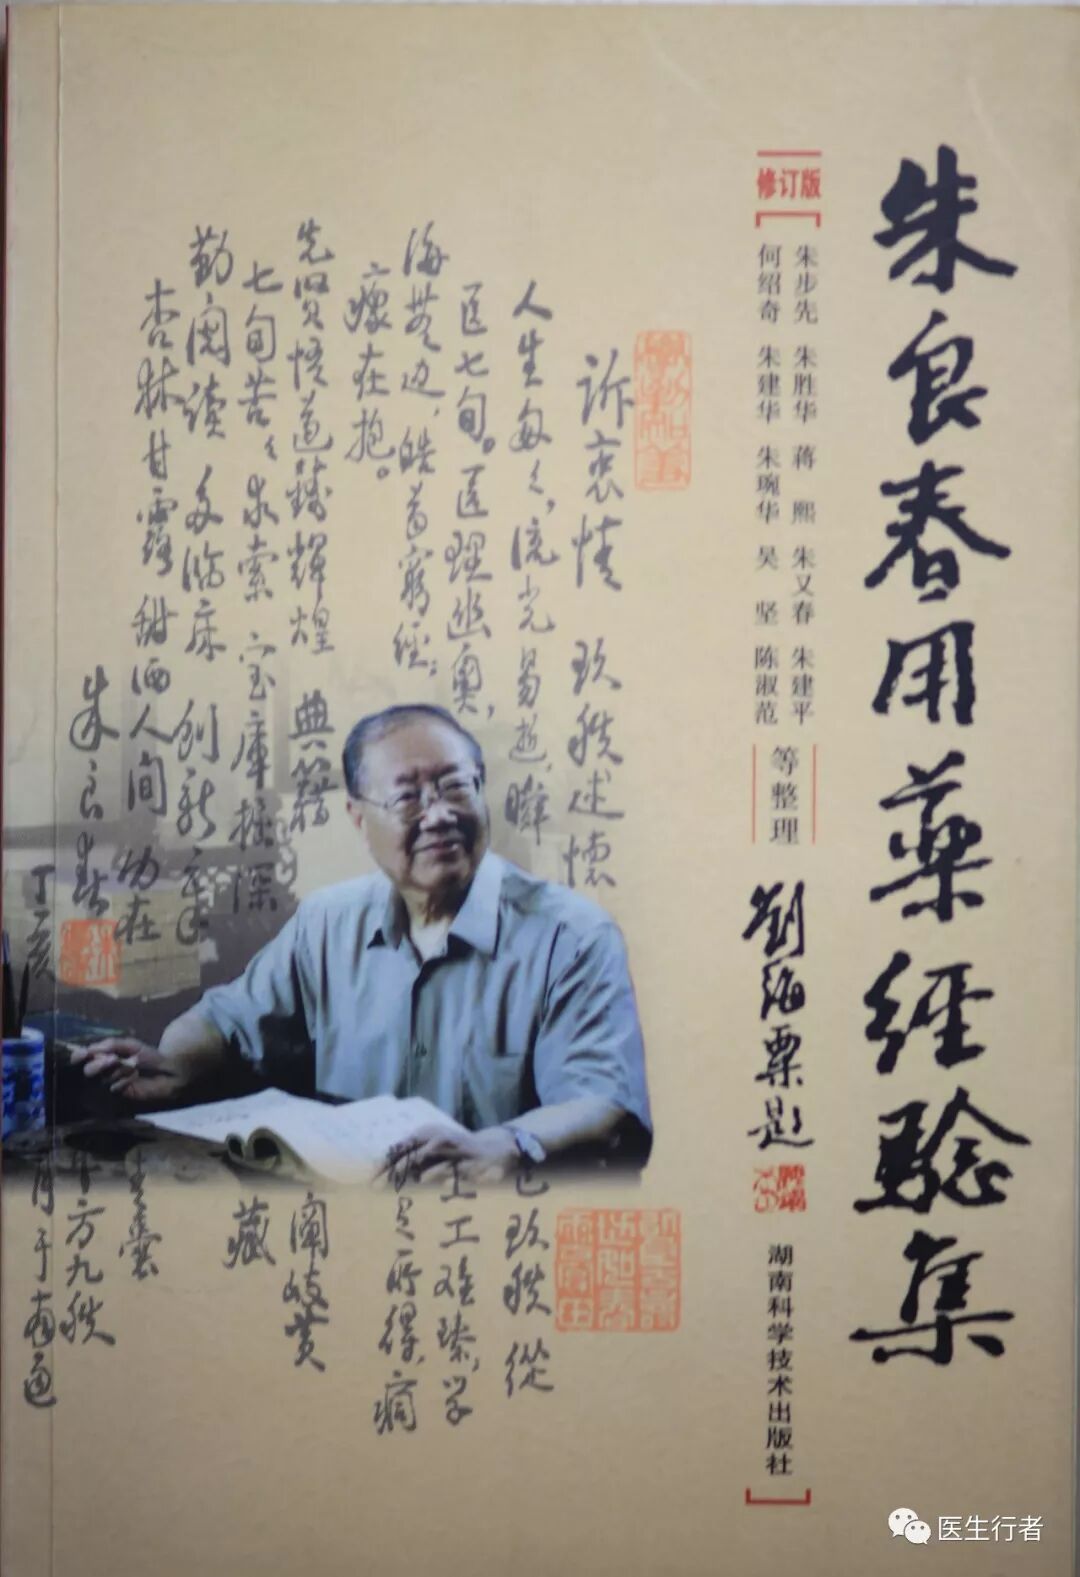 朱良春用药经验集
修订版
朱步先 朱胜华 蒋 熙 朱又春 朱建平
何绍奇 朱建华 朱琬华 吴 坚 陈淑范
等整理
劉海粟題
湖南科学技术出版社
訴衷情 玖秩述懷
人生匆匆,流光易逝,瞬 已玖秩從
医七旬。医理幽奥, 上工难臻,学
海無边,皓首穷經; 所得,痌
瘝在抱。
先賢悟道鑄輝煌 典籍 闡岐黄
七旬苦苦求索 宝庫挖深 藏
勤閱读 多临床 創新章
杏林甘露 甜洒人间 功在
朱良春
丁亥 方九秩 月于南通
医生行者